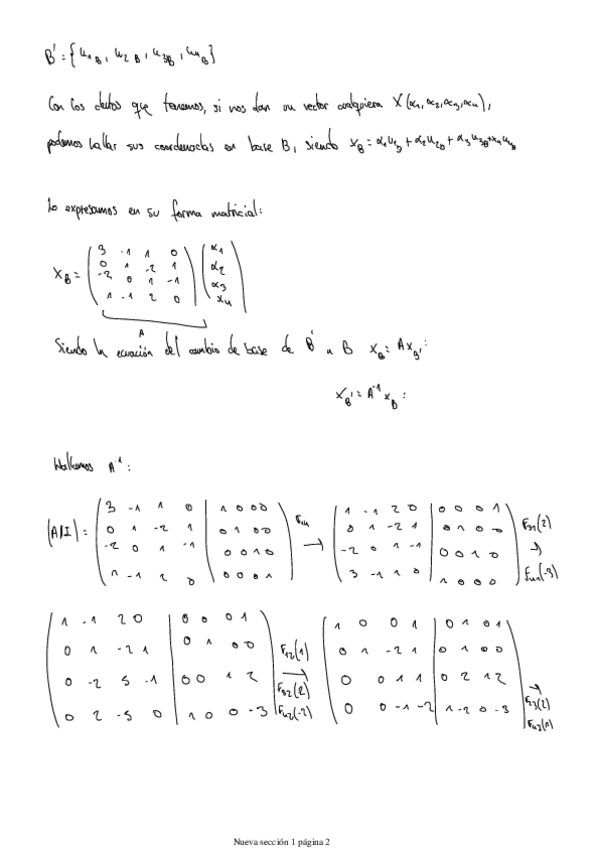 B' = {u₁B, u₂B, u₃B, u₄B}
Con los datos que tenemos, si nos dan un vector cualquiera X(α₁,α₂,α₃,α₄),
podemos hallar sus coordenadas en base B, siendo x_B = α₁u₁B + α₂u₂B + α₃u₃B + α₄u₄B
Lo expresamos en su forma matricial:
3 -1 1 0 α₁
0 1 -2 1 α₂
X_B =
-2 0 1 -1 α₃
1 -1 2 0 α₄
A
Siendo la ecuación del cambio de base de B' a B x_B = Ax_B' :
x_B' = A⁻¹x_B :
Hallamos A⁻¹ :
(A|I) =
3 -1 1 0 | 1 0 0 0
0 1 -2 1 | 0 1 0 0
-2 0 1 -1 | 0 0 1 0
1 -1 2 0 | 0 0 0 1
F₁₄ →
1 -1 2 0 | 0 0 0 1
0 1 -2 1 | 0 1 0 0
-2 0 1 -1 | 0 0 1 0
3 -1 1 0 | 1 0 0 0
F₃₁(2)
→
F₄₁(-3)
1 -1 2 0 | 0 0 0 1
0 1 -2 1 | 0 1 0 0
0 -2 5 -1 | 0 0 1 2
0 2 -5 0 | 1 0 0 -3
F₁₂(1)
→
F₃₂(2)
F₄₂(-2)
1 0 0 1 | 0 1 0 1
0 1 -2 1 | 0 1 0 0
0 0 1 1 | 0 2 1 2
0 0 -1 -2 | 1 -2 0 -3
→
F₂₃(2)
F₄₃(1)
Nueva sección 1 página 2